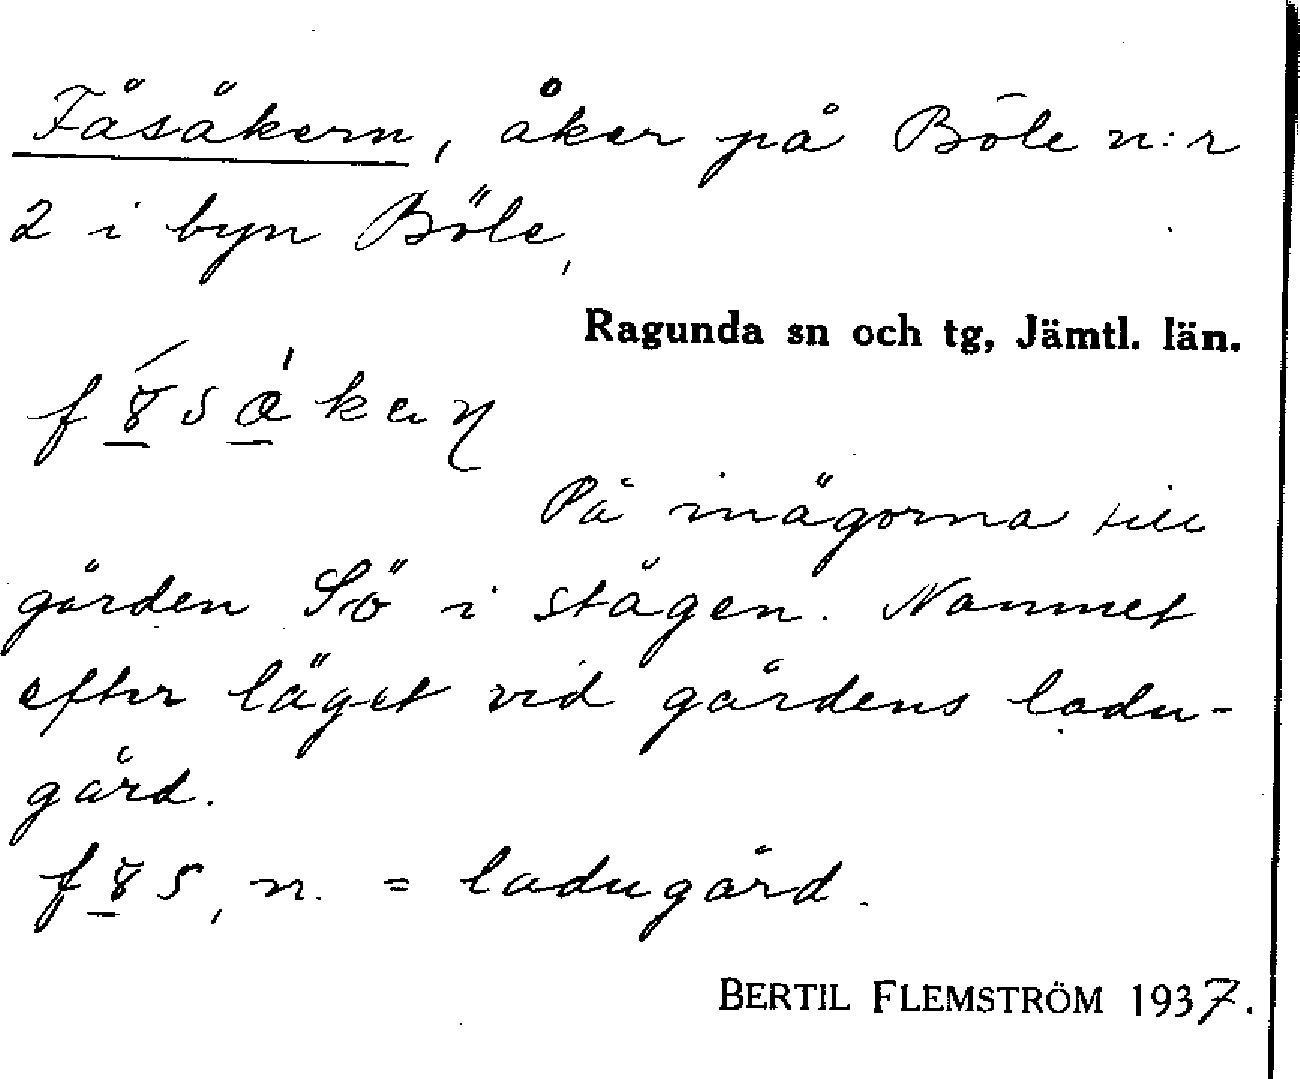 Fåsåkern, åker på Böle n:r
2 i byn Böle,
Ragunda sn och tg, Jämtl. län.
På inägorna till
gården Sö i stägen. Namnet
efter läget vid gårdens ladu-
gård.
n. = ladugård.
BERTIL FLEMSTRÖM 1937.